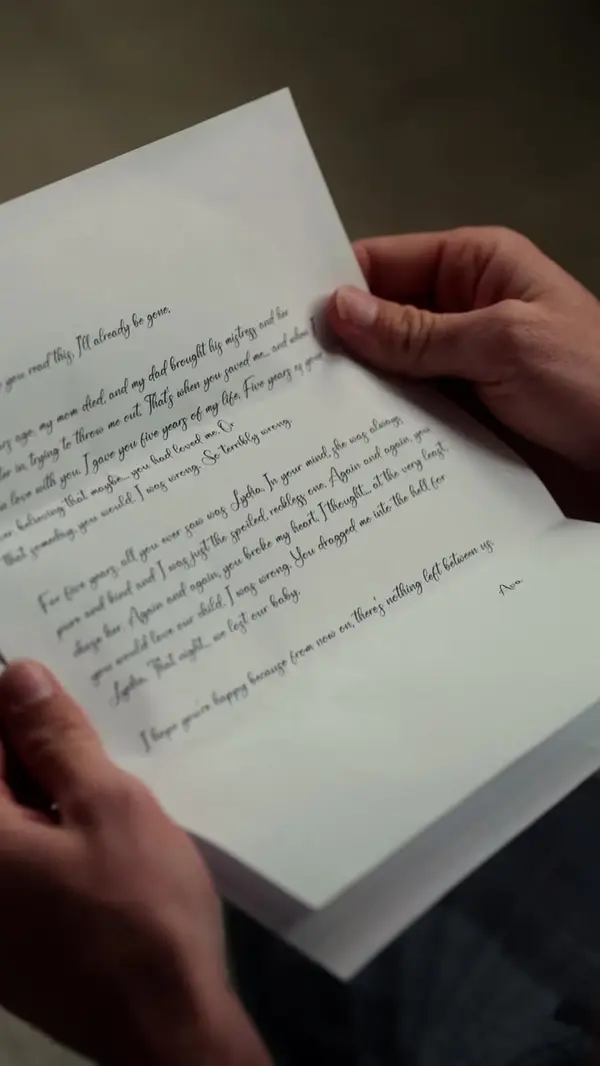 you read this, I'll already be gone.
ago, my mom died, and my dad brought his mistress and her
in, trying to throw me out. That's when you saved me... and when I
love with you. I gave you five years of my life. Five years of your
believing that maybe... you had loved me. Or
that someday, you would. I was wrong. So terribly wrong.
For five years, all you ever saw was Lydia. In your mind, she was always
pure and kind and I was just the spoiled, reckless one. Again and again, you
chose her. Again and again, you broke my heart. I thought... at the very least,
you would love our child. I was wrong. You dragged me into the hell for
Lydia. That night... we lost our baby.
I hope you're happy because from now on, there's nothing left between us.
Ava